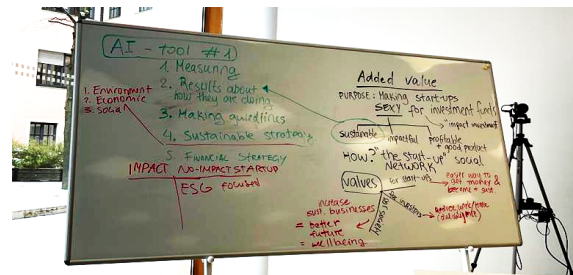 AI - tool #1
1. Measuring
2. Results about
how they are doing
3. Making guidelines
4. Sustainable strategy
5. FINANCIAL STRATEGY
1. Environment
2. Economic
3. Social
IMPACT NO-IMPACT STARTUP
ESG focused
Added value
PURPOSE: Making start-ups
SEXY for investment funds
"impact investment
sustainable impactful profitable
+ good product
HOW? "the start-up" social
NETWORK
values
for start-ups
easier way to
get money &
become + sust.
for investors
for society
(due diligence)
increase
sust. businesses
= better
future
= wellbeing